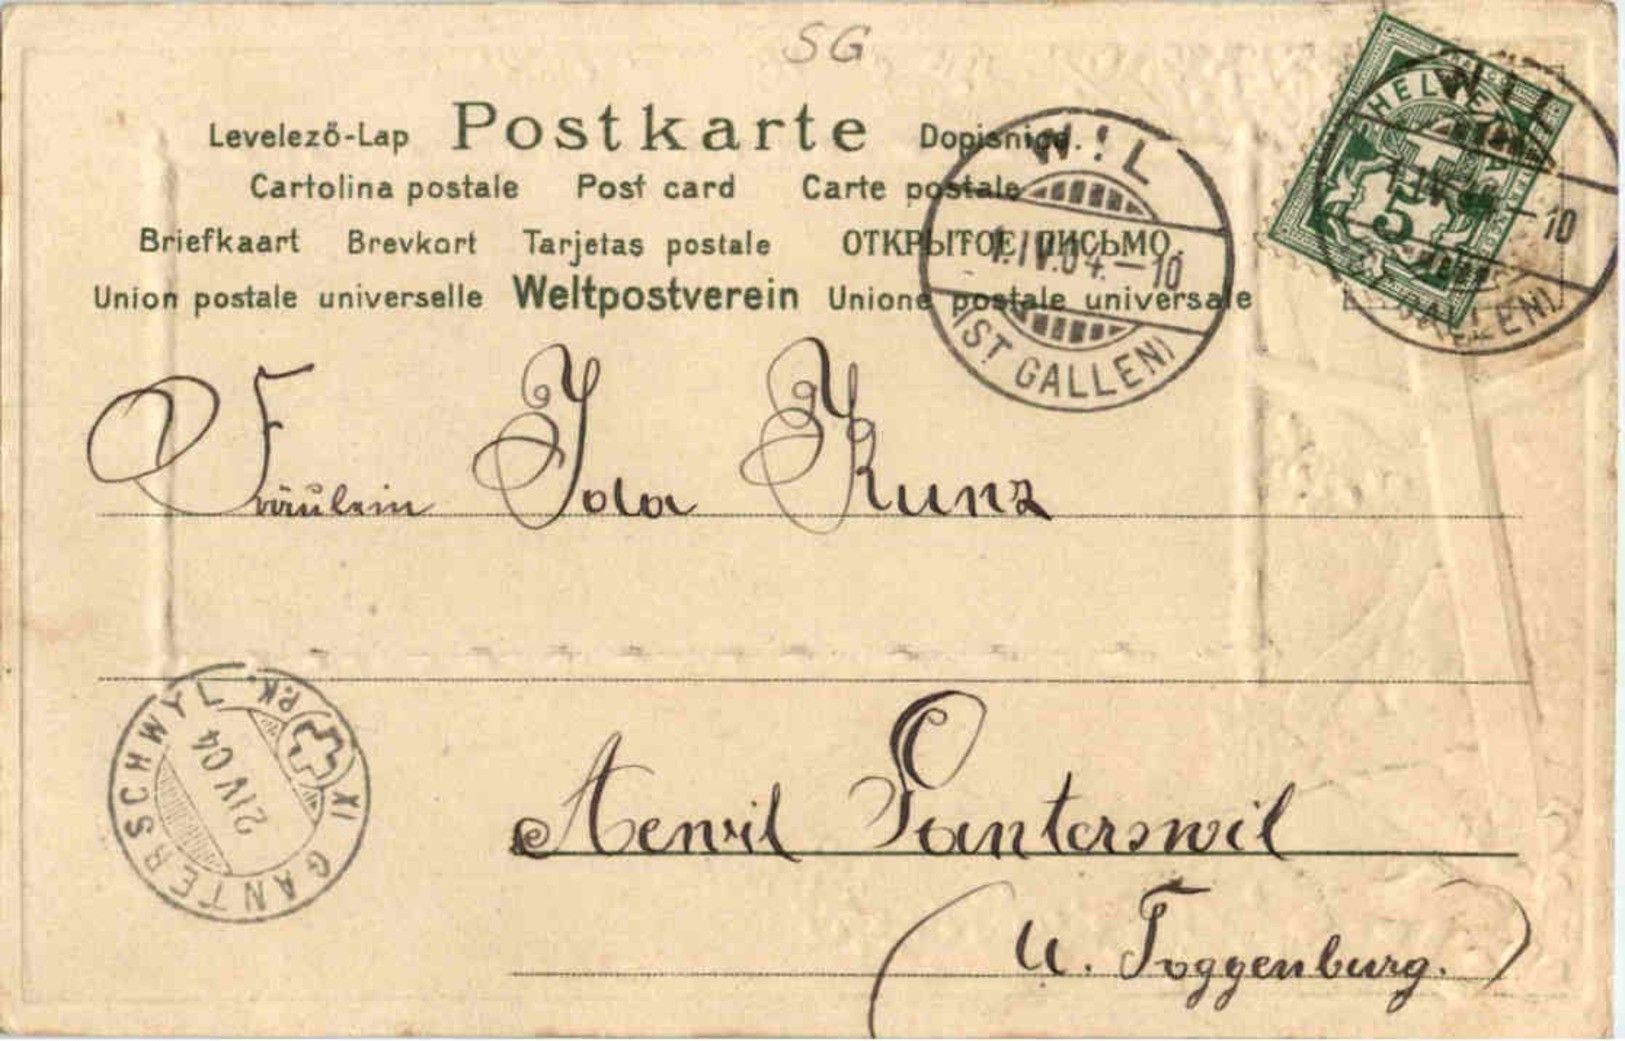 SG
Levelező-Lap Postkarte Dopisnice.
Cartolina postale Post card Carte postale
Briefkaart Brevkort Tarjetas postale ОТКРЫТОЕ ПИСЬМО.
Union postale universelle Weltpostverein Unione postale universale
HELVETIA
5
WIL
1.IV.04.–10
(ST GALLEN)
WIL
1.IV.04.–10
(ST GALLEN)
Fräulein Ida Kunz
GANTERSCHWYL
2 IV 04
XI
Aenwil Ganterswil
(U. Toggenburg.)